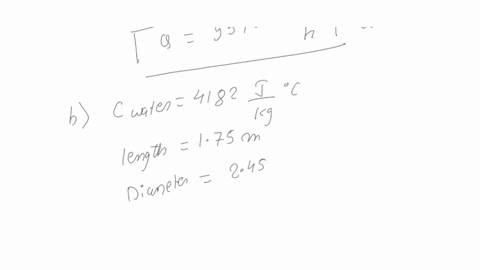 Q =
b) C water = 4182 J/kg °C
length = 1.75 m
Diameter = 2.45